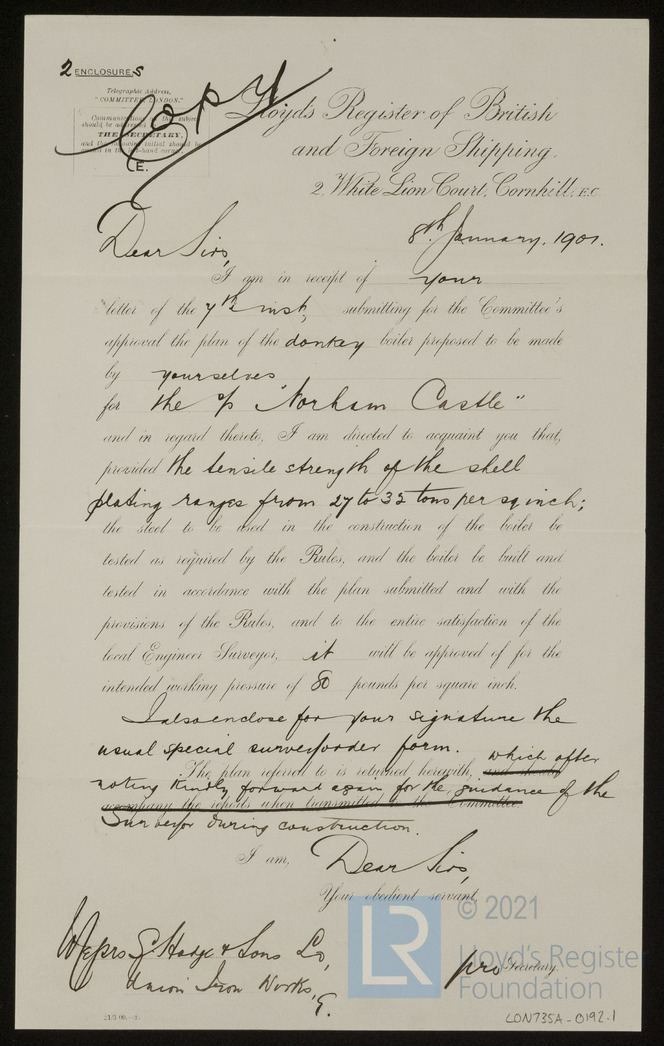 2 ENCLOSURES
Copy
Telegraphic Address,
"COMMITTEE, LONDON."
Communications on this subject
should be addressed to
THE SECRETARY,
and the following initial should be
in the left-hand corner.
E.
Lloyd's Register of British
and Foreign Shipping.
2, White Lion Court, Cornhill, E.C.
8th January, 1901.
Dear Sirs,
I am in receipt of your
letter of the 7th inst, submitting for the Committee's
approval the plan of the donkey boiler proposed to be made
by yourselves
for the "Norham Castle"
and in regard thereto, I am directed to acquaint you that,
provided the tensile strength of the shell
plating ranges from 27 to 32 tons per sq inch;
the steel to be used in the construction of the boiler be
tested as required by the Rules, and the boiler be built and
tested in accordance with the plan submitted and with the
provisions of the Rules, and to the entire satisfaction of the
local Engineer Surveyor, it will be approved of for the
intended working pressure of 80 pounds per square inch.
I also enclose for your signature the
usual special survey order form.
The plan referred to is returned herewith, and should which after
noting kindly forward again for the guidance of the
accompany the reports when transmitted to the Committee.
Surveyor during construction.
I am,
Dear Sirs,
Your obedient servant,
Messrs G. Hodge & Sons Ld,
Union Iron Works,
pro Secretary.
LR
© 2021
Lloyd's Register
Foundation
LON735A-0192.1